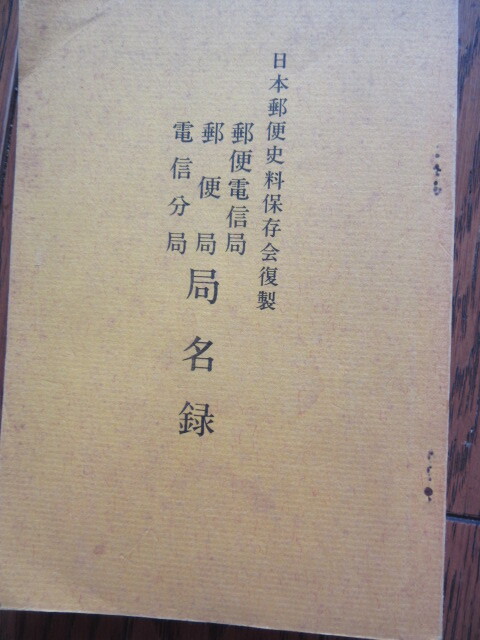 日本郵便史料保存会復製
郵便電信局
郵便局
電信分局
局名録